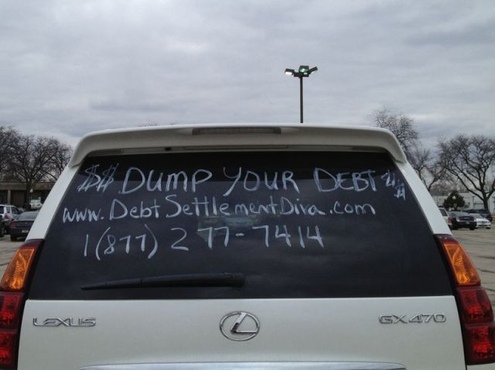 $$ DUMP YOUR DEBT $$
www.DebtSettlementDiva.com
1(877) 277-7414
LEXUS GX470